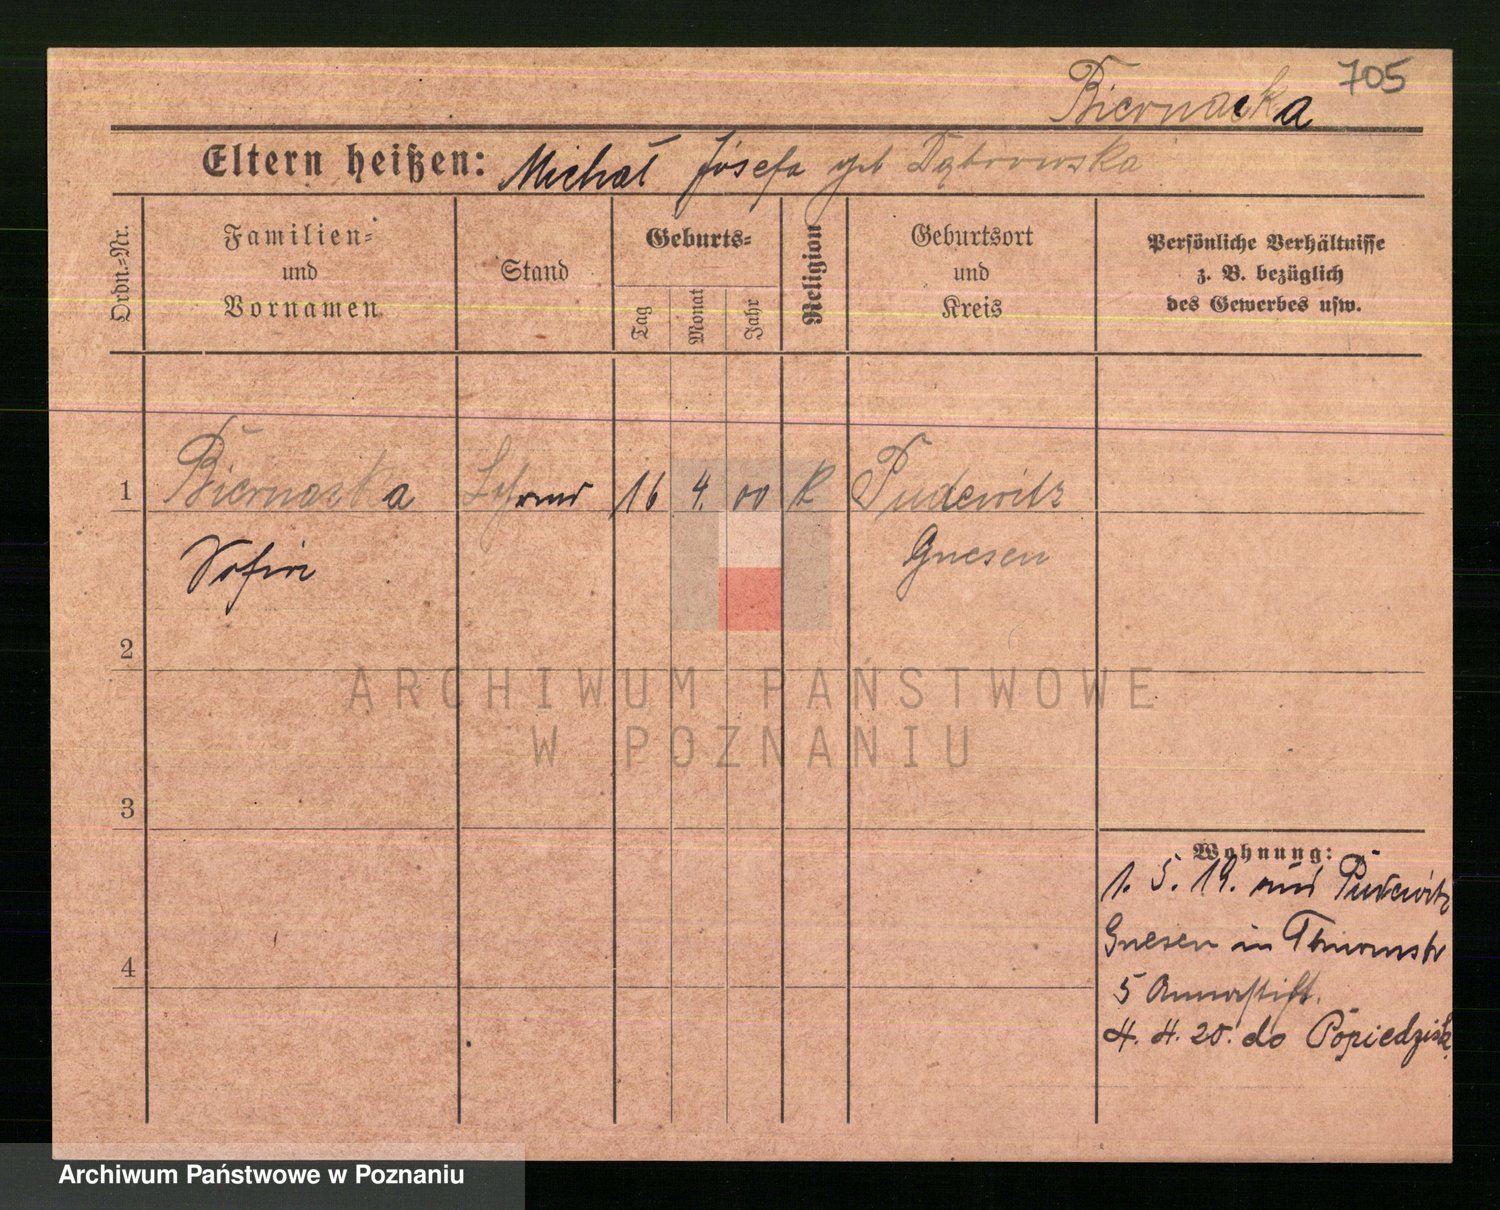 705
Biernacka
Eltern heißen: Michał Józefa geb Dąbrowska
Ordn.-Nr.
Familien- und Vornamen
Stand
Geburts-
Tag
Monat
Jahr
Religion
Geburtsort und Kreis
Persönliche Verhältnisse
z. B. bezüglich
des Gewerbes usw.
1 Biernacka 16 4. 00 k Pudewitz
Sofie Gnesen
2
ARCHIWUM PAŃSTWOWE
W POZNANIU
3
Wohnung:
1. 5. 19. aus Pudewitz
Gnesen in
5 Annastift.
4
4. 4. 20. do Pobiedzisk
Archiwum Państwowe w Poznaniu